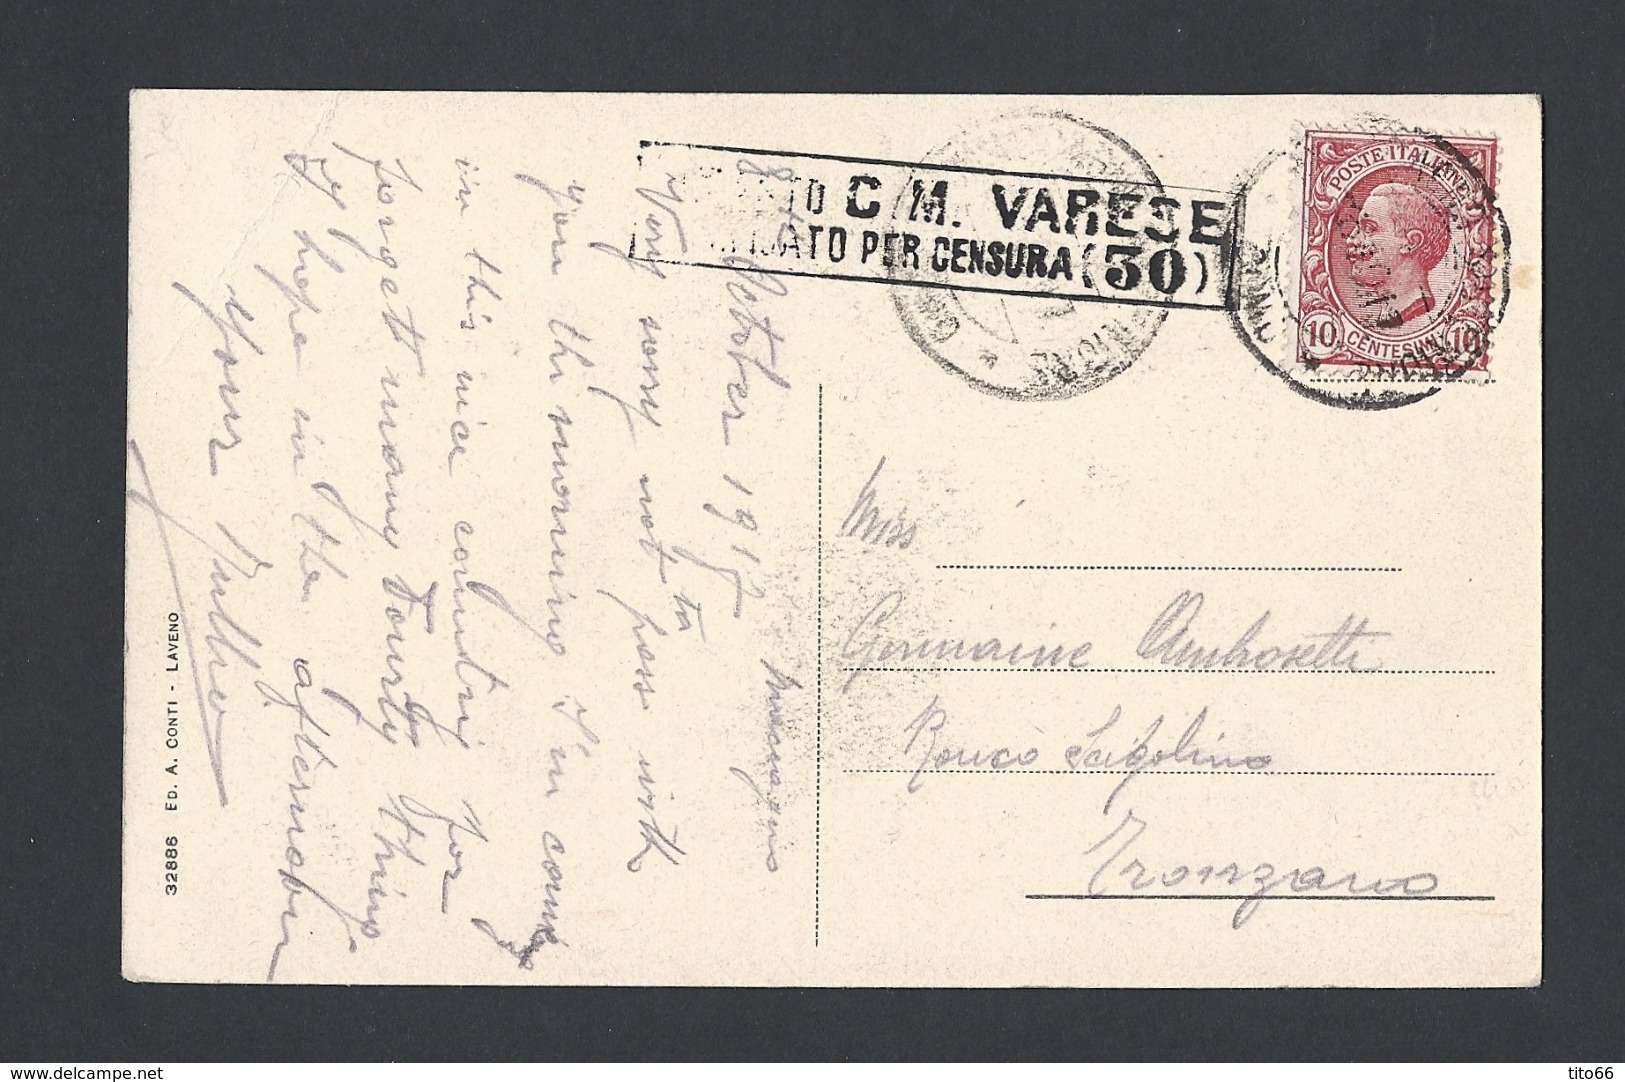 8th October 1918
Maccagno
Very sorry not to pass with
you the morning I'm coming
in this nice country for
forgett many Tourly things
I hope in the afternoon
Your Tullio
C. M. VARESE
PER CENSURA (30)
POSTE ITALIANE
10 CENTESIMI 10
Miss
Germaine Ambrosetti
Ronco Scigolino
Tronzano
32886 ED. A. CONTI - LAVENO
www.delcampe.net
tito66